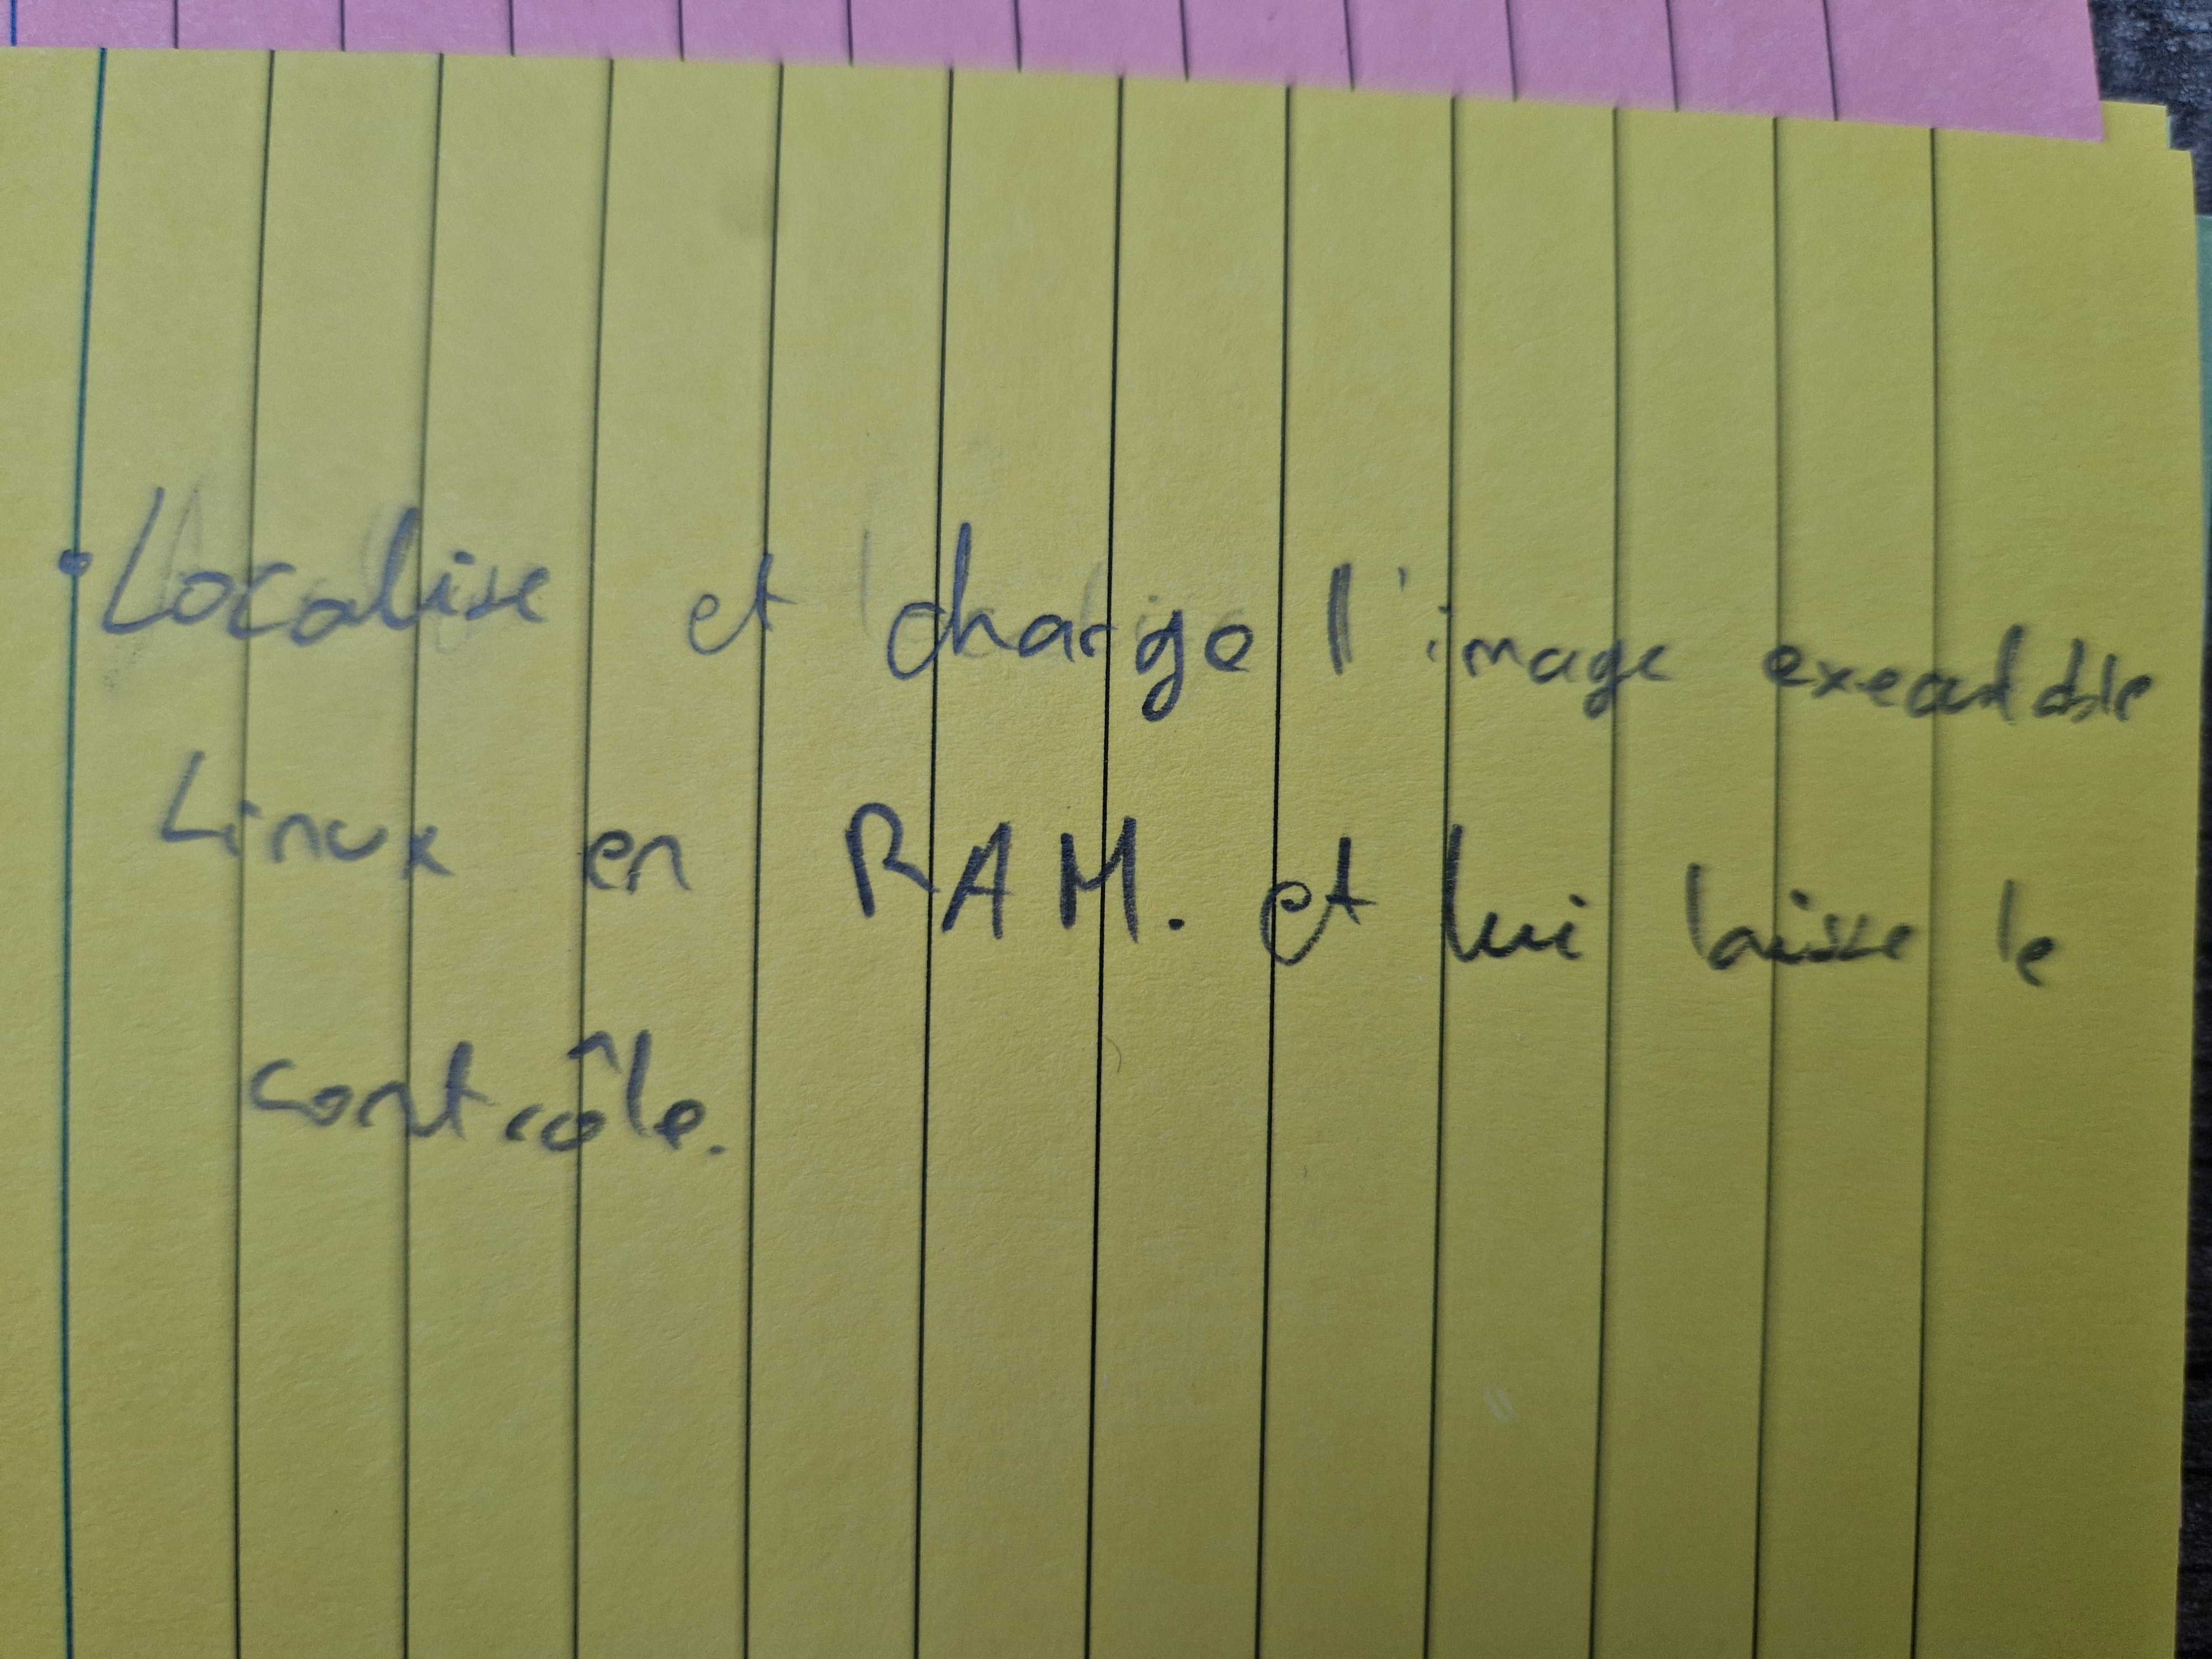 • Localise et charge l'image executable
Linux en RAM. et lui laisse le
contrôle.